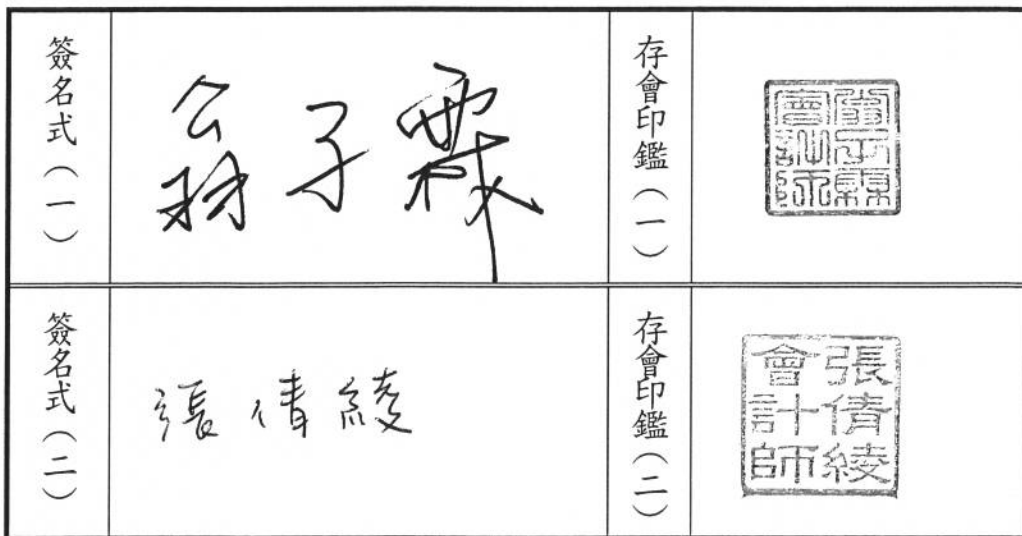 簽名式（一）
翁子霖
存會印鑑（一）
翁子霖
會計師
簽名式（二）
張倩綾
存會印鑑（二）
張倩綾
會計師